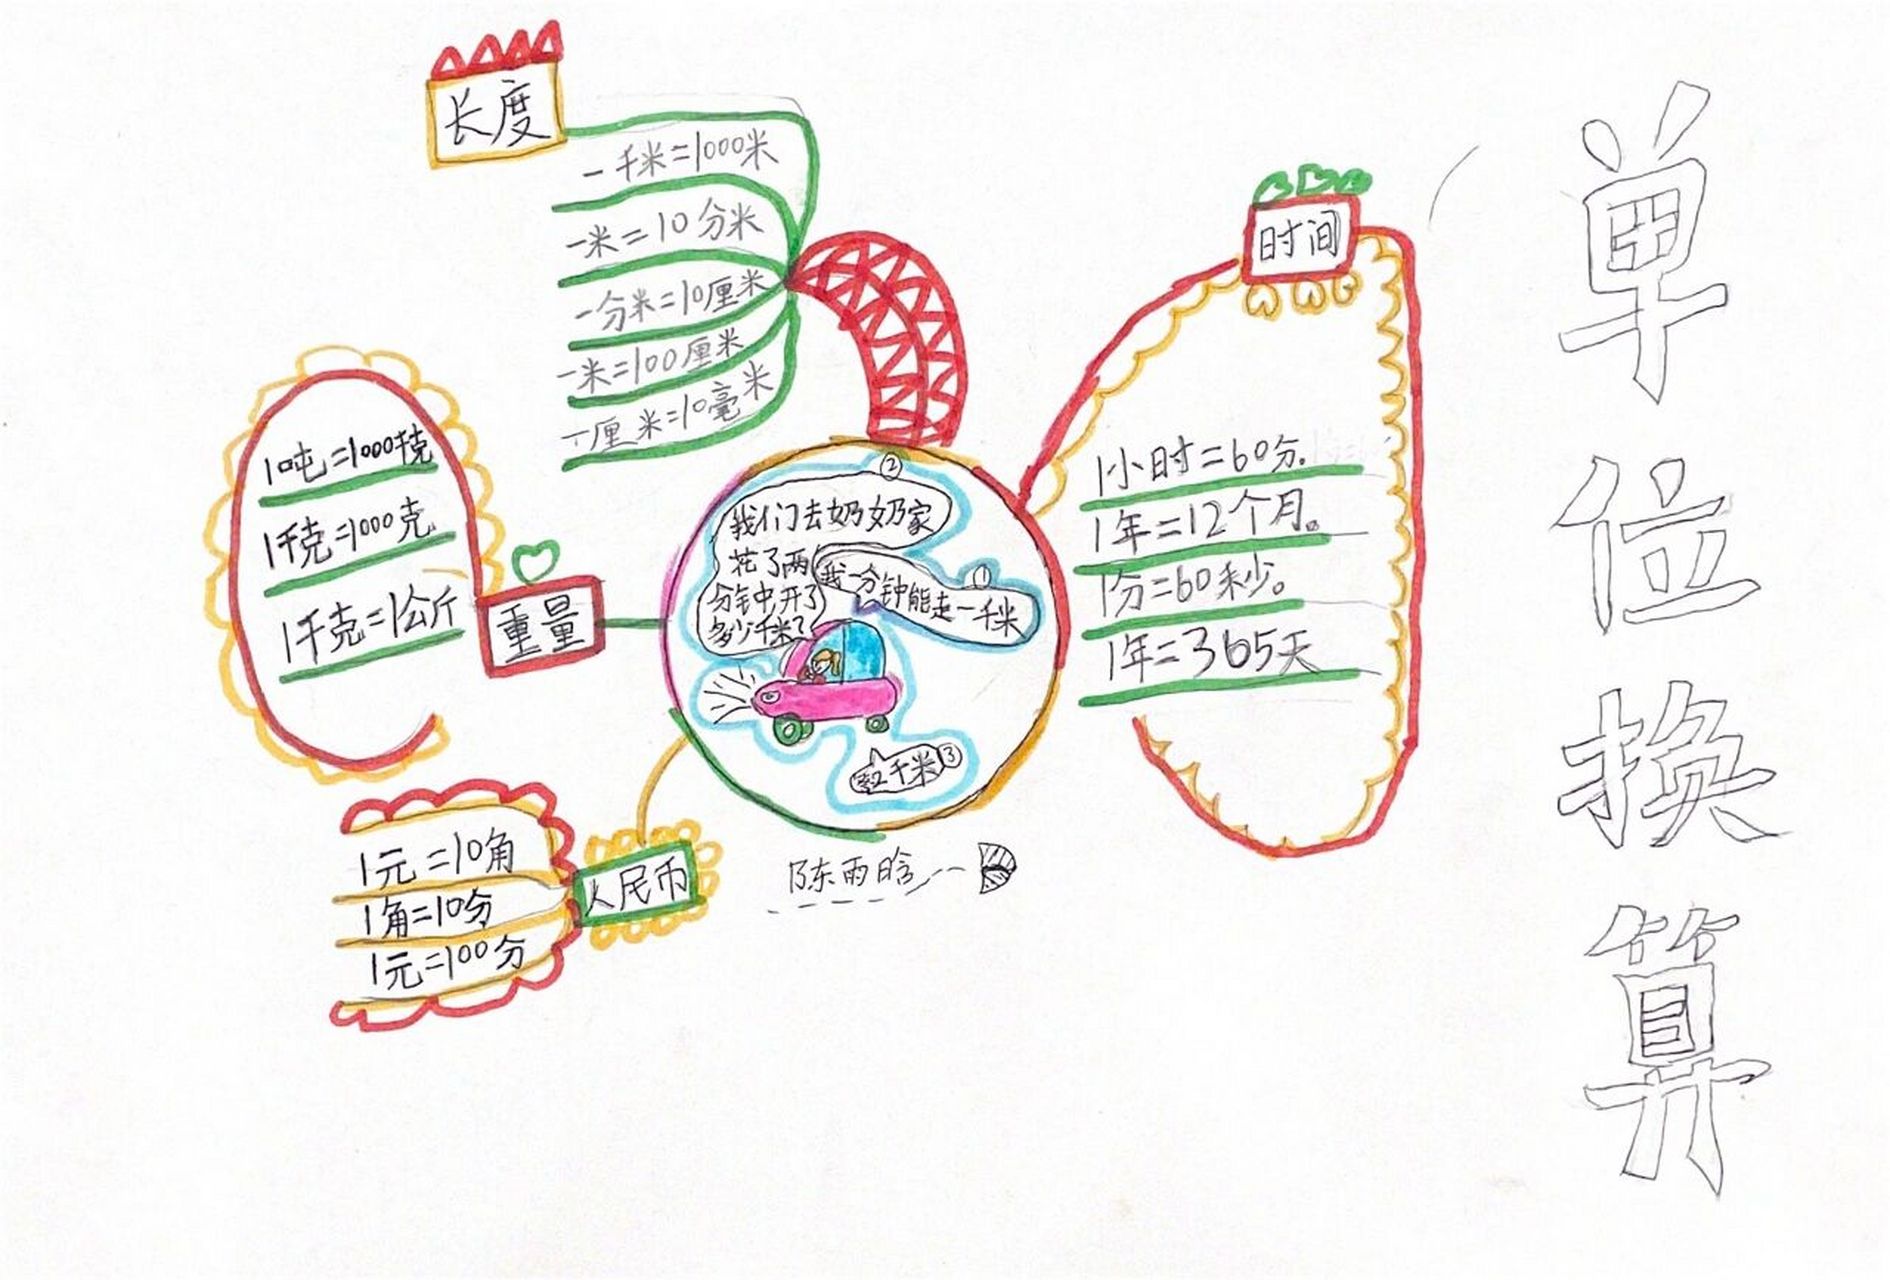 单位换算
长度
一千米=1000米
一米=10分米
一分米=10厘米
一米=100厘米
一厘米=10毫米
时间
1小时=60分.
1年=12个月。
1分=60秒。
1年=365天
1吨=1000千克
1千克=1000克
1千克=1公斤
重量
②
我们去奶奶家
花了两
分钟,开了
多少千米?
①
我一分钟能走一千米
2千米
③
1元=10角
1角=10分
1元=100分
人民币
陈雨晗